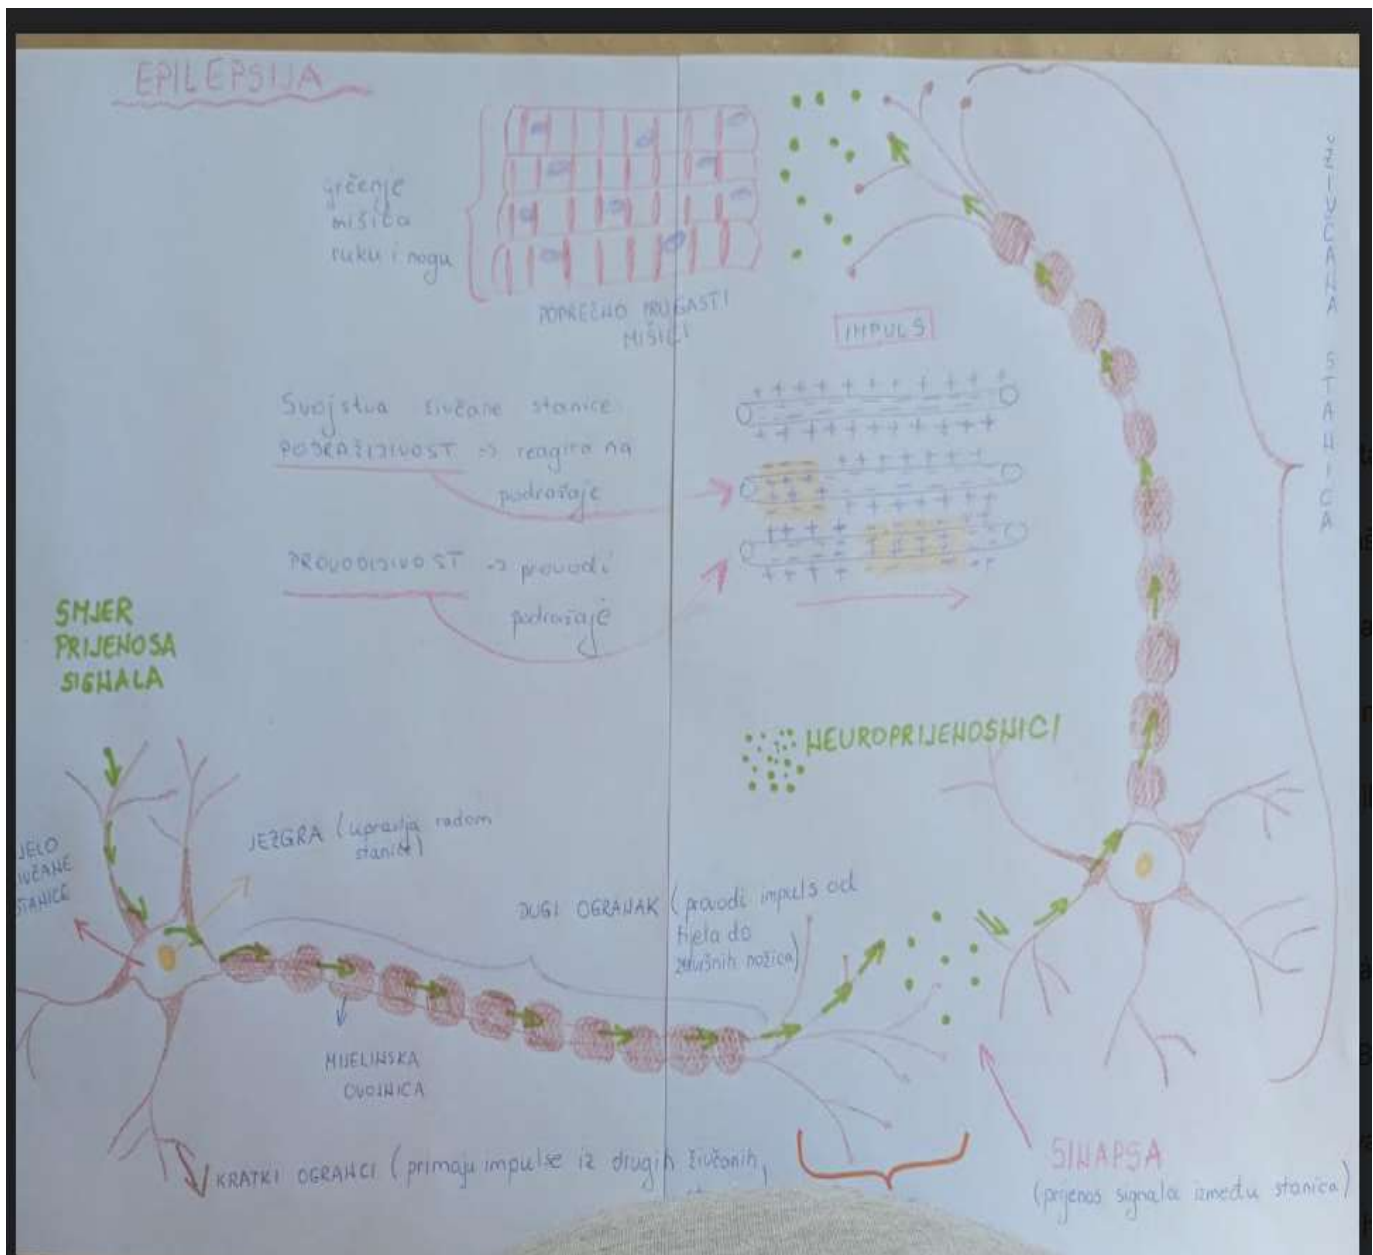 EPILEPSIJA
grčenje
mišića
ruku i nogu
POPREČNO PRUGASTI
MIŠIĆI
IMPULS
ŽIVČANA STANICA
Svojstva živčane stanice:
PODRAŽLJIVOST -> reagira na
podražaje
PROVODLJIVOST -> provodi
podražaje
SMJER
PRIJENOSA
SIGNALA
NEUROPRIJENOSNICI
JEZGRA (upravlja radom
stanice)
JELO
IVČANE
STANICE
DUGI OGRANAK (provodi impuls od
tijela do
završnih nožica)
MIJELINSKA
OVOJNICA
KRATKI OGRANCI (primaju impulse iz drugih živčanih
SINAPSA
(prijenos signala između stanica)